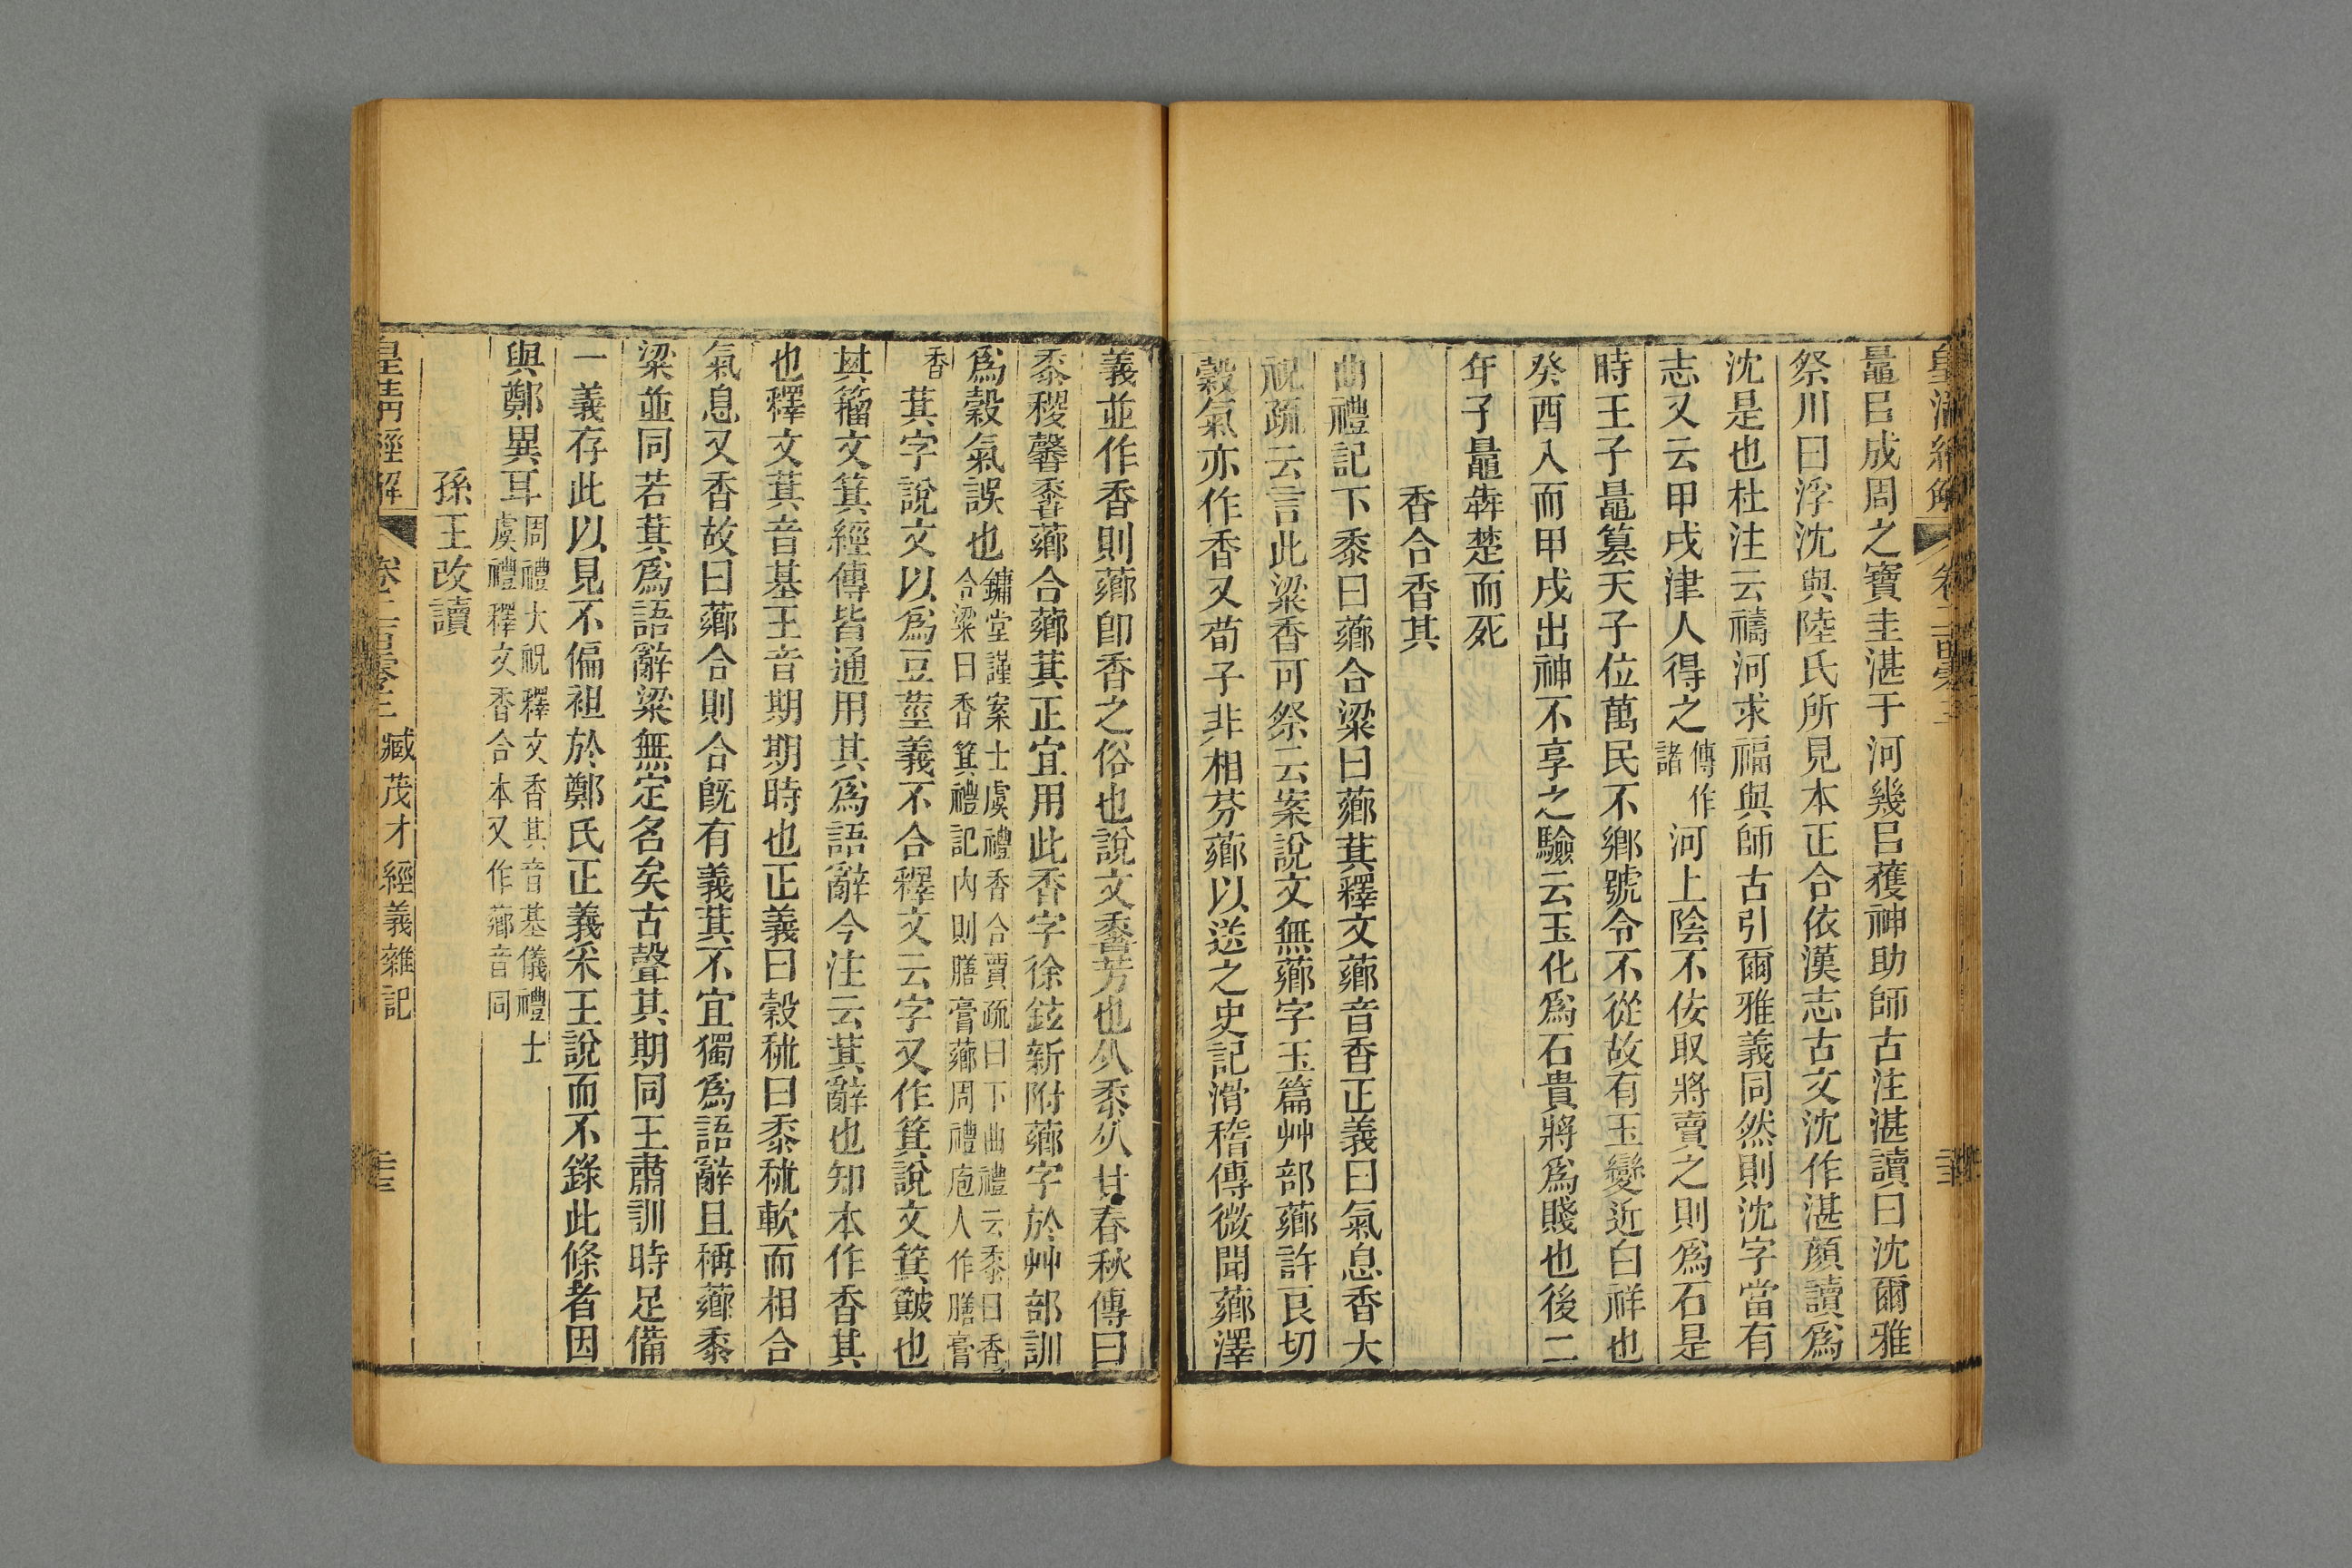 皇清經解
卷二百三
鼂㠯成周之寶圭湛于河幾㠯蒦神助師古注湛讀曰沈爾雅
祭川曰浮沈與陸氏所見本正合依漢志古文沈作湛顏讀爲
沈是也杜注云禱河求福與師古引爾雅義同然則沈字當有
志又云甲戌津人得之傳作諸河上陰不佞取將賣之則爲石是
時王子鼂篡天子位萬民不鄉號令不從故有玉變近白祥也
癸酉入而甲戌出神不享之驗云玉化爲石貴將爲賤也後二
年子鼂奔楚而死
香合香其
曲禮記下黍曰薌合粱曰薌萁釋文薌音香正義曰氣息香大
祝疏云言此粱香可祭云案說文無薌字玉篇艸部薌許良切
穀氣亦作香又荀子非相芬薌以送之史記滑稽傳微聞薌澤
義並作香則薌卽香之俗也說文香芳也从黍从甘春秋傳曰
黍稷馨香薌合薌萁正宜用此香字徐鉉新附薌字於艸部訓
爲穀氣誤也鏞堂謹案士虞禮香合賈疏曰下曲禮云黍曰香
合粱曰香箕禮記內則膳膏薌周禮庖人作膳膏
香萁字說文以爲豆莖義不合釋文云字又作箕說文箕簸也
其籀文箕經傳皆通用其爲語辭今注云萁辭也知本作香其
也釋文萁音基王音期期時也正義曰穀秫曰黍秫軟而相合
氣息又香故曰薌合則合旣有義萁不宜獨爲語辭且稱薌黍
粱並同若萁爲語辭粱無定名矣古聲其期同王肅訓時足備
一義存此以見不偏袒於鄭氏正義采王說而不錄此條者因
與鄭異耳周禮大祝釋文香其音基儀禮士
虞禮釋文香合本又作薌音同
孫王改讀
皇清經解
卷二百三
臧茂才經義雜記